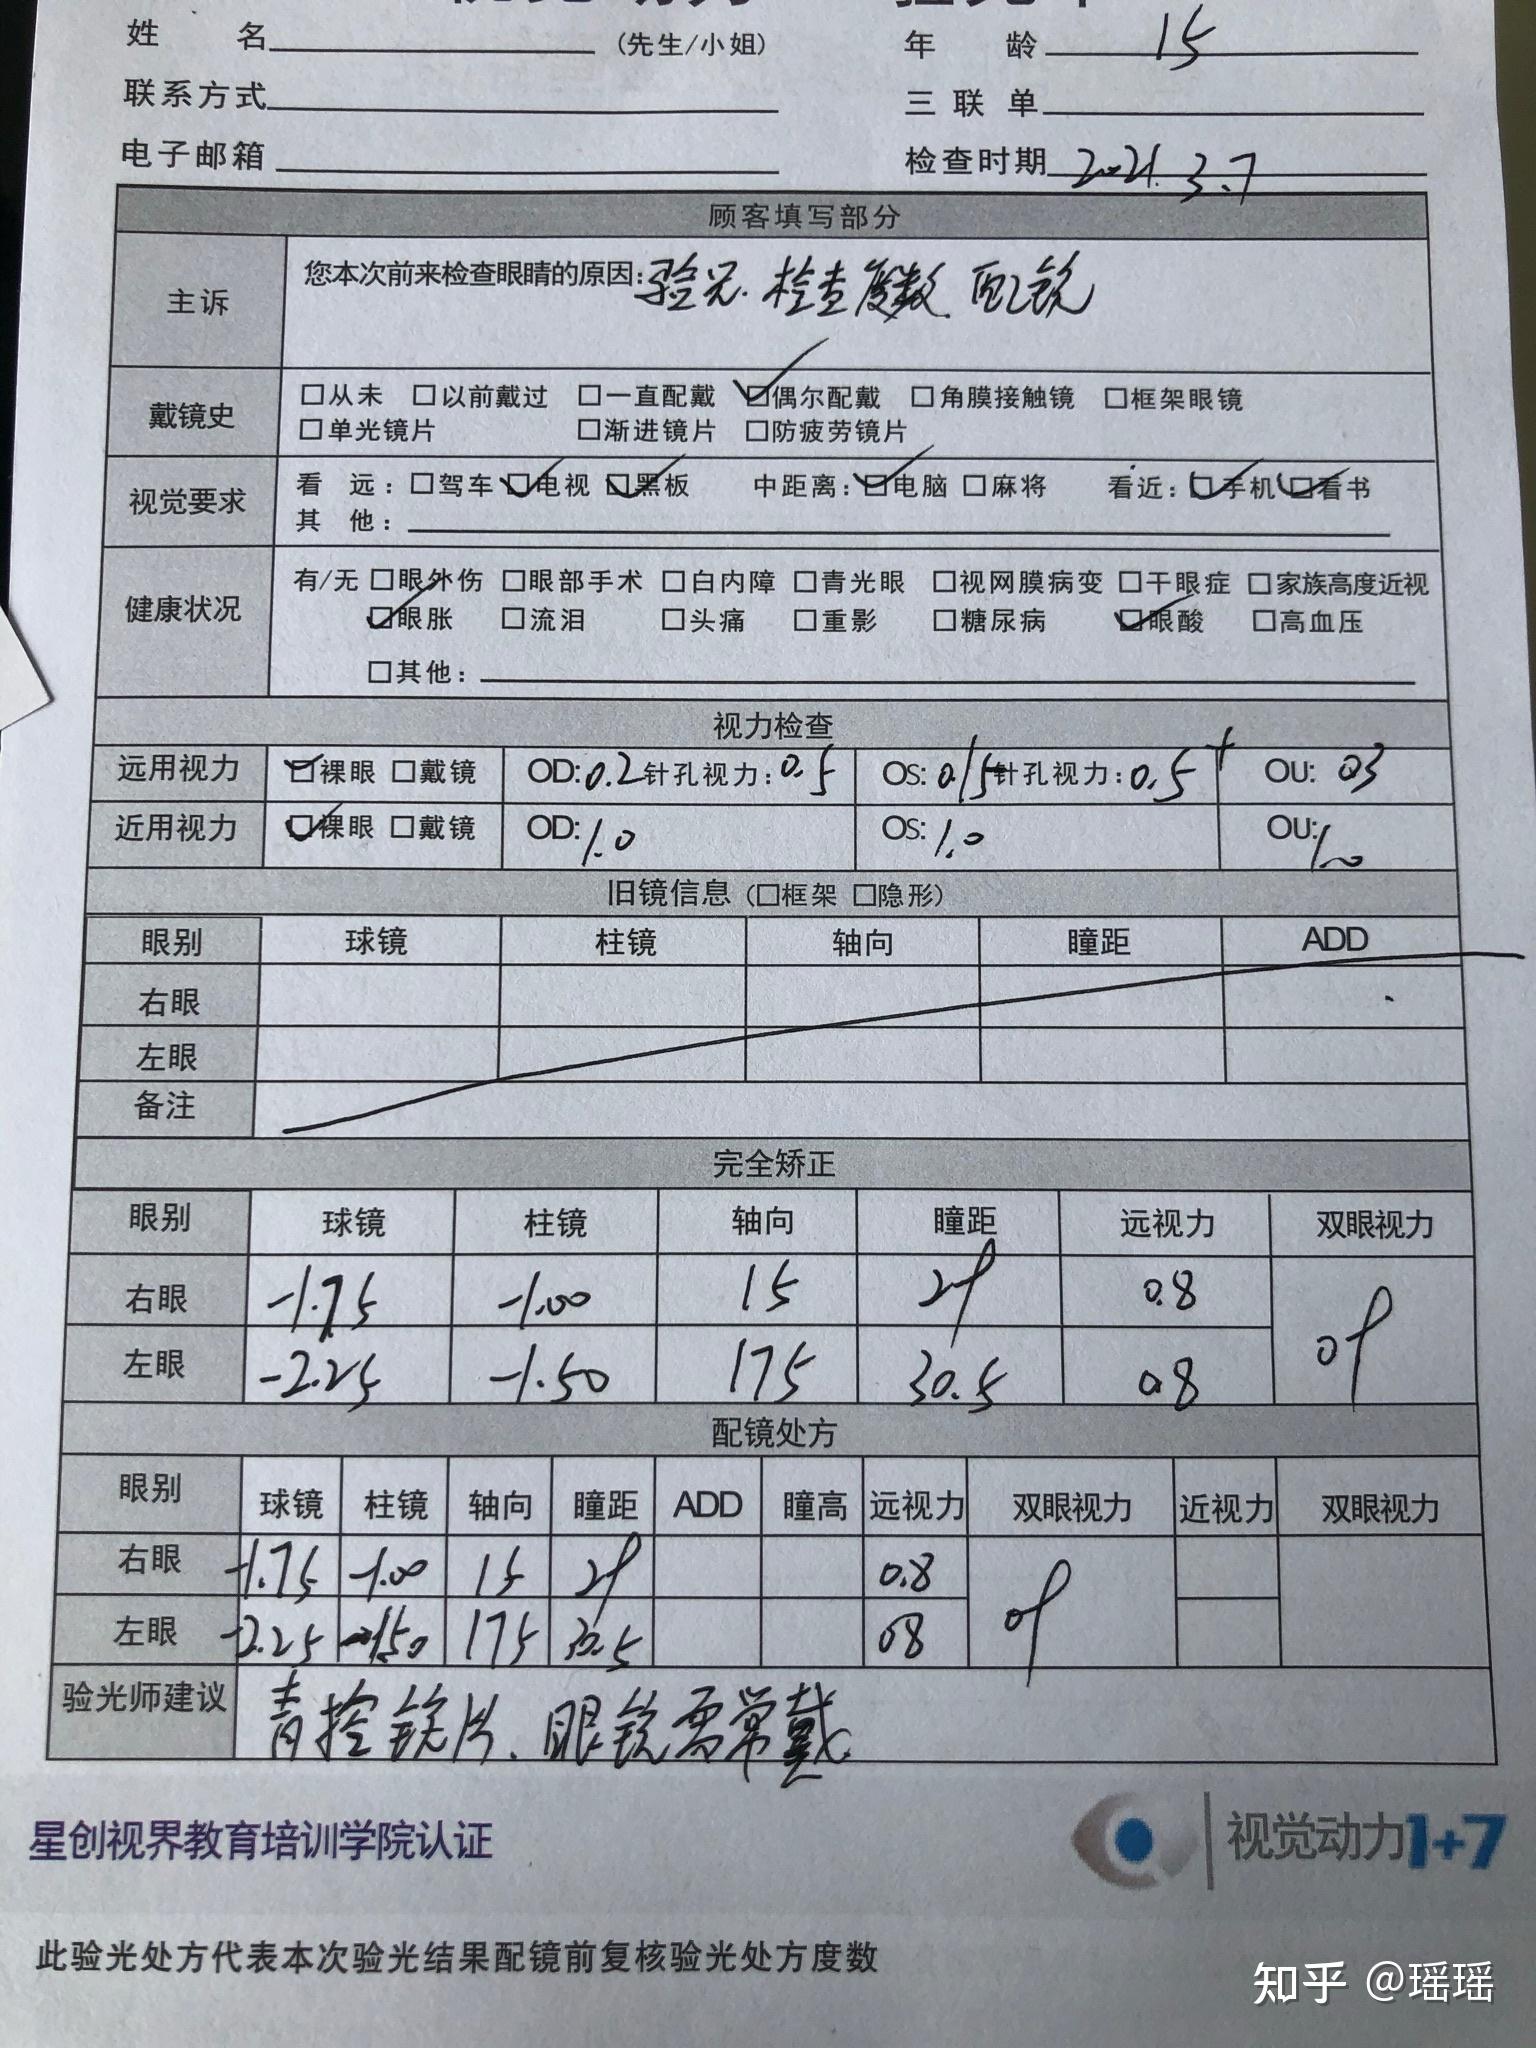 姓 名 (先生/小姐) 年 龄 15
联系方式 三 联 单
电子邮箱 检查时期 2021.3.7
顾客填写部分
主诉 您本次前来检查眼睛的原因: 验光. 检查度数. 配镜
戴镜史 □从未 □以前戴过 □一直配戴 ☑偶尔配戴 □角膜接触镜 □框架眼镜
□单光镜片 □渐进镜片 □防疲劳镜片
视觉要求 看 远: □驾车 ☑电视 ☑黑板 中距离: ☑电脑 □麻将 看近: ☑手机 ☑看书
其 他:
健康状况 有/无 □眼外伤 □眼部手术 □白内障 □青光眼 □视网膜病变 □干眼症 □家族高度近视
☑眼胀 □流泪 □头痛 □重影 □糖尿病 ☑眼酸 □高血压
□其他:
视力检查
远用视力 ☑裸眼 □戴镜 OD: 0.2 针孔视力: 0.5 OS: 0.15 针孔视力: 0.5+ OU: 0.3
近用视力 ☑裸眼 □戴镜 OD: 1.0 OS: 1.0 OU: 1.0
旧镜信息 (□框架 □隐形)
眼别 球镜 柱镜 轴向 瞳距 ADD
右眼
左眼
备注
完全矫正
眼别 球镜 柱镜 轴向 瞳距 远视力 双眼视力
右眼 -1.75 -1.00 15 29 0.8 0.9
左眼 -2.25 -1.50 175 30.5 0.8
配镜处方
眼别 球镜 柱镜 轴向 瞳距 ADD 瞳高 远视力 双眼视力 近视力 双眼视力
右眼 -1.75 -1.00 15 29 0.8 0.9
左眼 -2.25 -1.50 175 30.5 0.8
验光师建议 青控镜片. 眼镜需常戴.
星创视界教育培训学院认证 视觉动力1+7
此验光处方代表本次验光结果配镜前复核验光处方度数
知乎 @瑶瑶